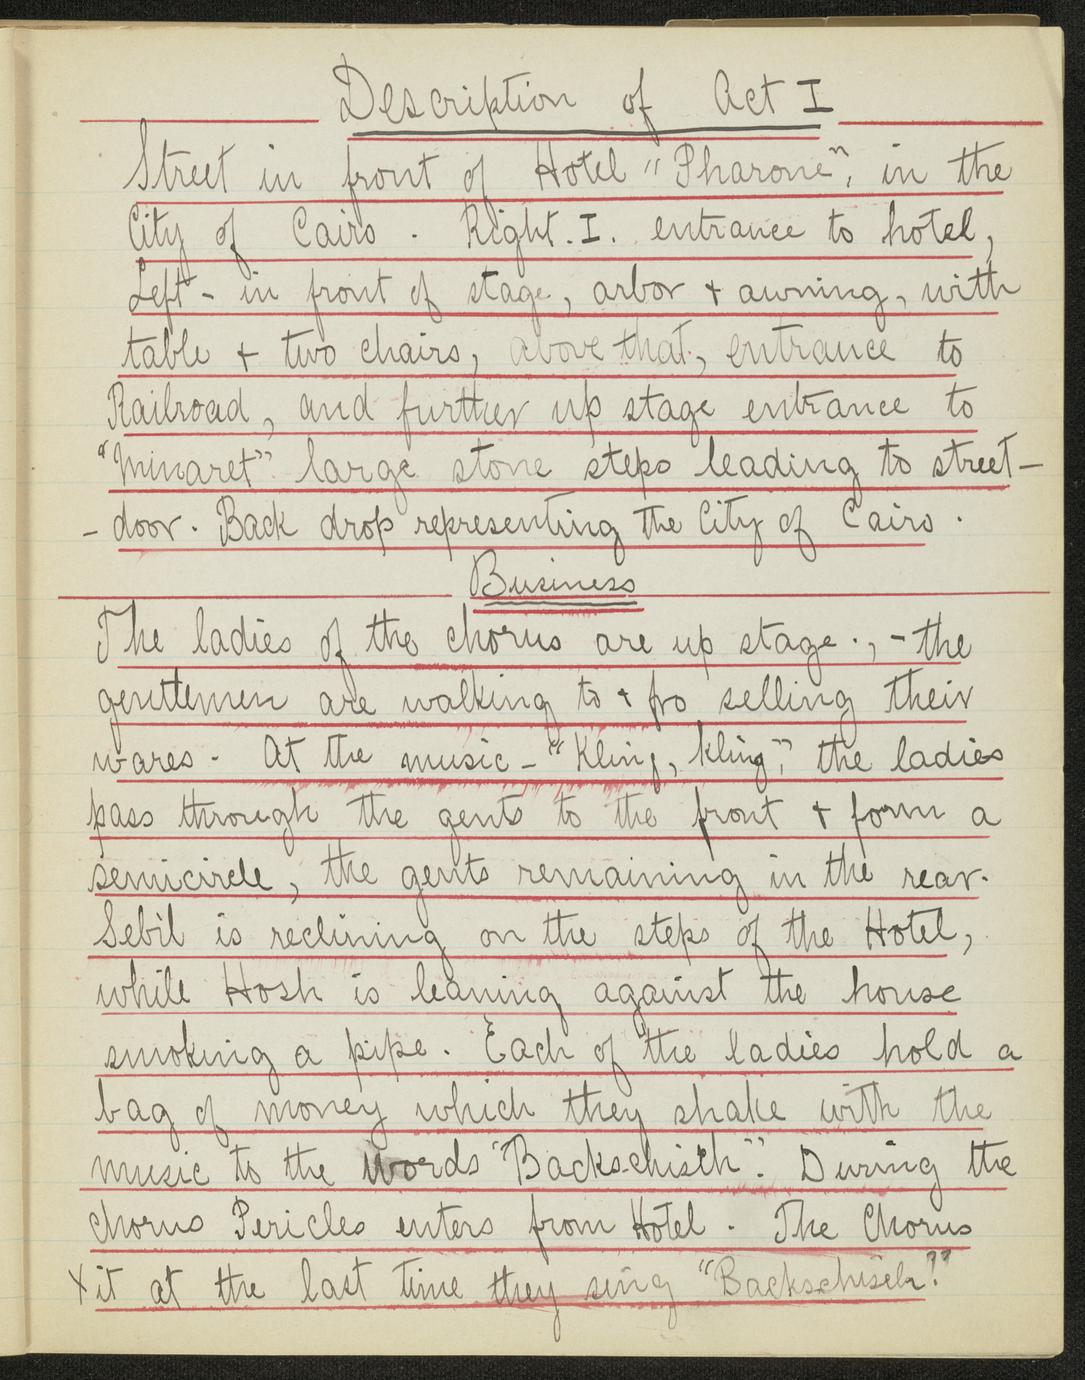 Description of Act I
Street in front of Hotel "Pharone", in the
City of Cairo. Right. I. entrance to hotel,
Left - in front of stage, arbor + awning, with
table + two chairs, above that, entrance to
Railroad, and further up stage entrance to
"Minaret" large stone steps leading to street-
- door. Back drop representing the City of Cairo.
Business
The ladies of the chorus are up stage., - the
gentlemen are walking to + fro selling their
wares - At the music - "Kling, Kling", the ladies
pass through the gents to the front + form a
semicircle, the gents remaining in the rear.
Sebil is reclining on the steps of the Hotel,
while Hosh is leaning against the house
smoking a pipe. Each of the ladies hold a
bag of money which they shake with the
music to the words "Backschisch". During the
chorus Pericles enters from Hotel. The Chorus
Xit at the last time they sing "Backschisch!"